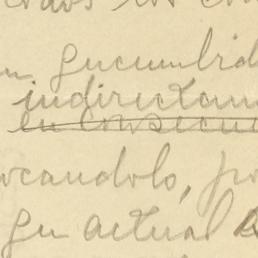 gucumbid
indirectam
en consecu
ocandolo, po
gu actual